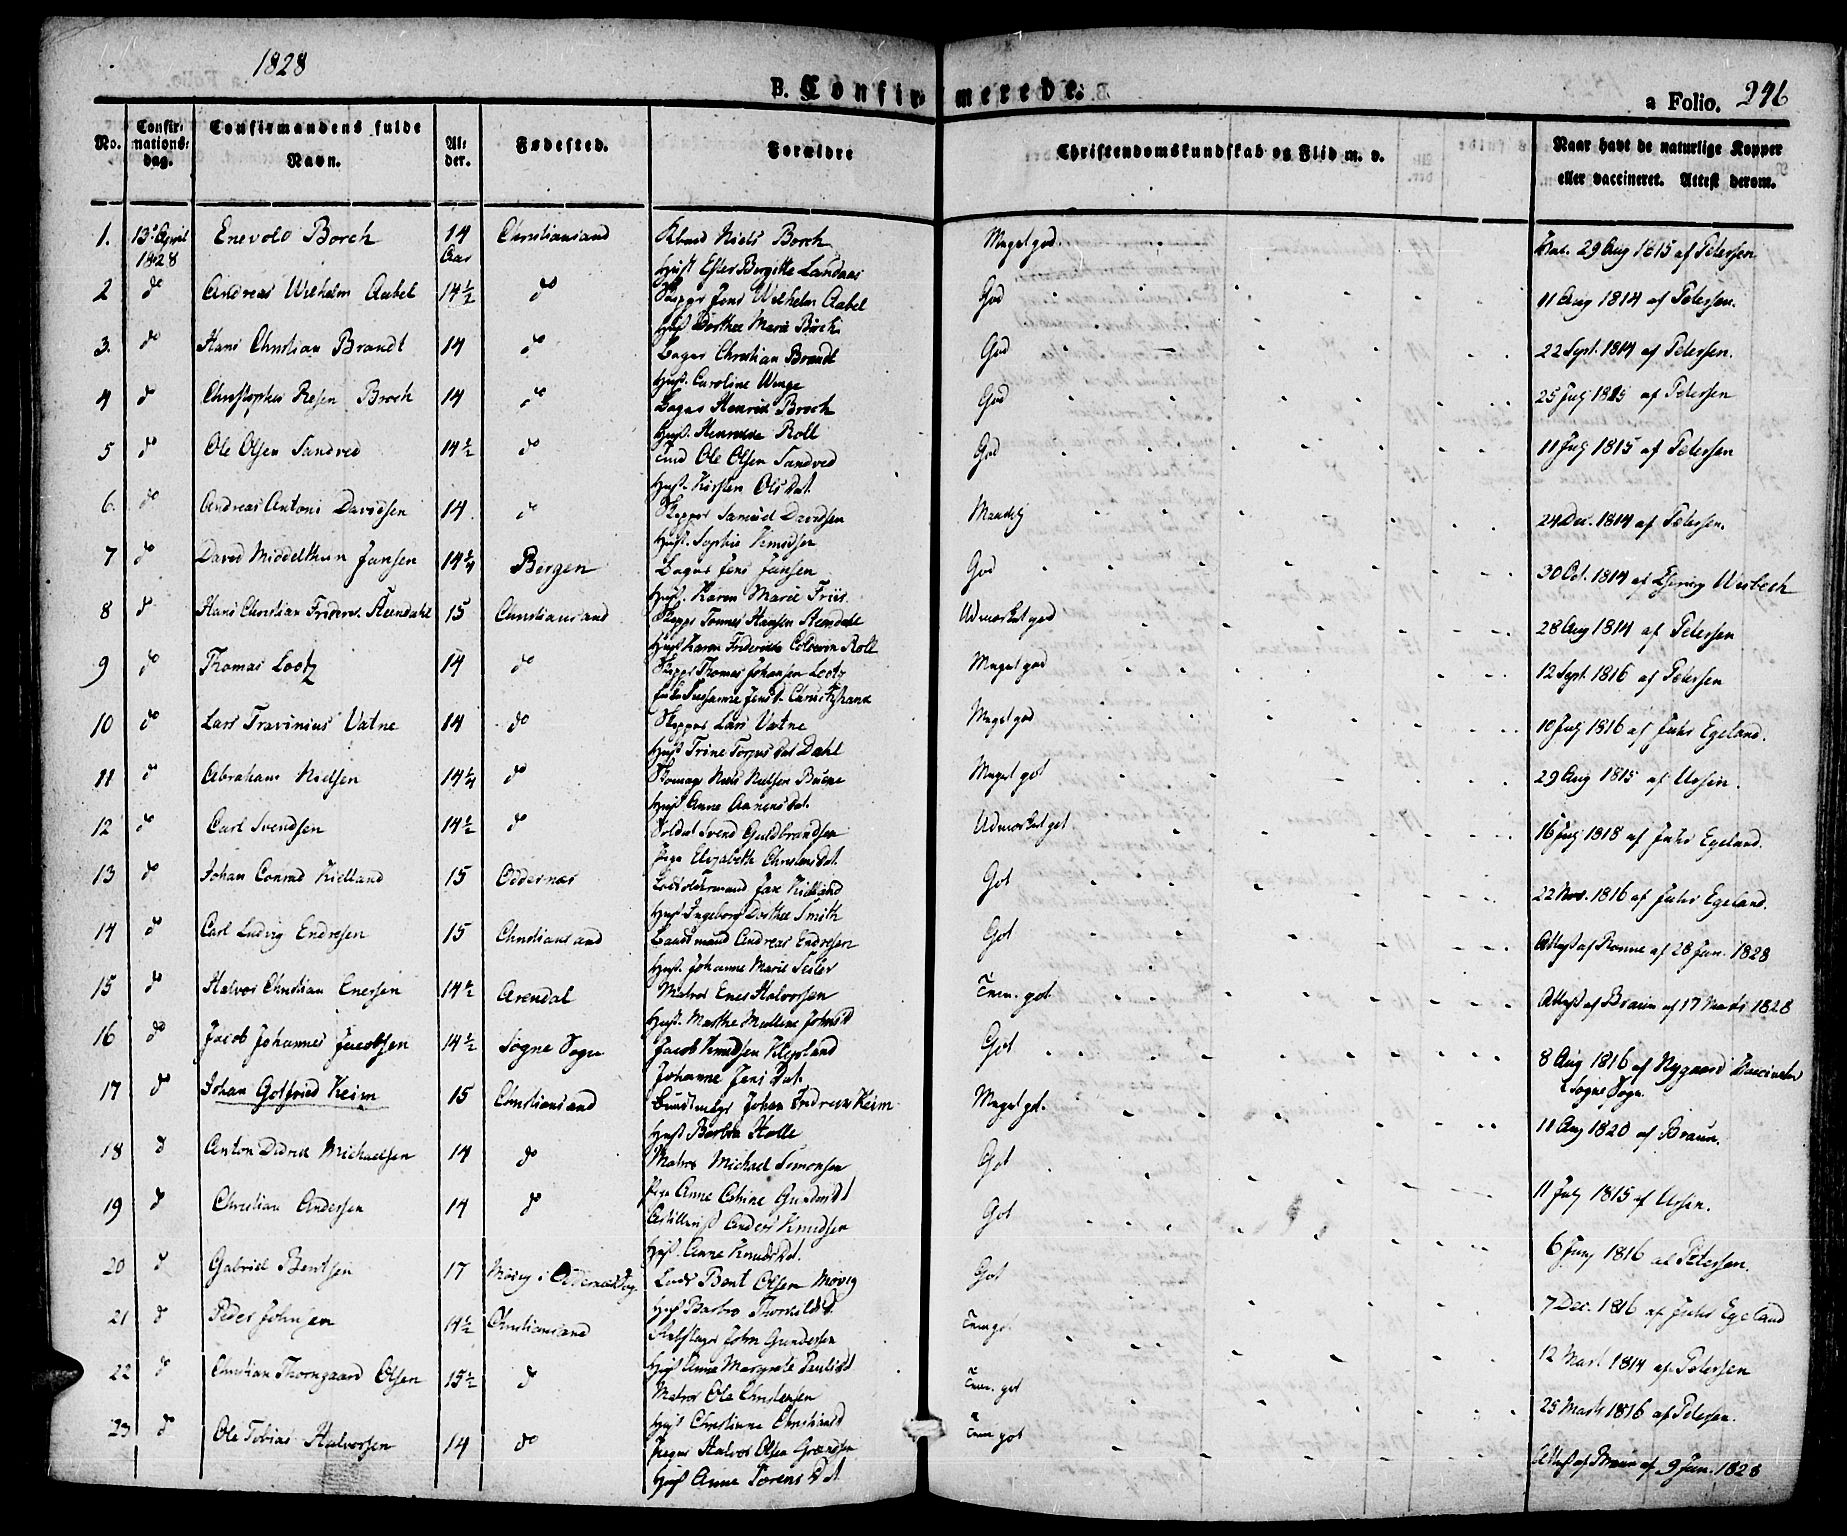 1828
B. Confirmerede.
a Folio. 246
No. Confirmations-dag. Confirmandens fulde Navn. Alder. Fødested. Forældre Christendomskundskab og Flid m. v. Naar havt de naturlige Kopper eller vaccineret. Attest derom.
1. 13de April 1828 Enevold Borch 14 Aar Christiansand Niels Borch Meget god. Vac. 29 Aug 1815 af Petersen
Hust Ester Birgitte Landaas
2 do Andreas Wilhelm Aabel 14½ do Skipper Jens Wilhelm Aabel God 11 Aug 1814 af Petersen.
Hust Dorthea Marie Birch
3. do Hans Christian Brandt 14 do Bager Christian Brandt God 22 Sept. 1814 af Petersen.
Hust. Caroline Wenge
4 do Christopher Resen Broch 14 do Bager Henrich Broch God 25 July 1815 af Petersen
Hust. Henrikke Roll
5 do Ole Olsen Sandved 14½ do Ole Olsen Sandved God 11 July 1815 af Petersen
Hust. Kirsten Olsdat.
6. do Andreas Antoni Davidsen 14. do Skipper Samuel Davidsen Maadelig 24 Dec. 1814 af Petersen.
Hust. Sophie Knudsen
7 do David Middelthun Jansen 14¼ Bergen Bager Jens Jansen God 30 Oct. 1814 af Wisbech
Hust. Karen Marie Friis
8 do Hans Christian Friderik Steendahl 15 Christiansand Skipper Tønnes Hansen Steendahl Udmærket god 28 Aug 1814 af Petersen
Hust Karen Friderikke Colbiørn Roll
9 do Thomas Lootz 14 do Skipper Thomas Johansen Lootz Meget god 12 Sept. 1816 af Petersen
Susanne Jensd.
10 do Lars Travinius Vatne 14 do Skipper Lars Vatne Meget god 10 July 1816 af Juhr Egeland.
Hust Trine Torjusdat Dahl
11 do Abraham Nielsen 14¼ do Niels Nielsen Buene Meget got 29 Aug 1815 af Ursin.
Hust Anne Aanensdat.
12 do Carl Svendsen 14½ do Soldat Svend Guldbrandsen Udmærket got 16 July 1818 af Juhr Egeland.
Pige Elisabeth Christensdat.
13 do Johan Conrad Kielland 15 Oddernæs Lodsoldermand Jax Kielland Got 22 Nov. 1816 af Juhr Egeland.
Hust Ingeborg Dorthea Smith
14 do Carl Ludvig Endresen 15 Christiansand Baadsmand Andreas Endresen Got Attest af Rønne af 28 Jan. 1828
Hust. Johanne Marie
15 do Halvor Christian Enersen 14½ Arendal Matros Ener Halvorsen Tem. got. Attest af Braun af 17 Marts 1828
Hust. Marthe Malline Johnsd
16 do Jacob Johannes Jacobsen 14½ Søgne Sogn Jacob Knudsen Klepland Got 8 Aug 1816 af Nygaard Vaccinatør
Johanne Jensdat. i Søgne Sogn.
17 do Johan Gotfried Keim 15 Christiansand Buntmager Johan Andreas Keim Meget got. 11 Aug 1820 af Braun.
Hust Barbra Halle
18 do Anton Didrik Michaelsen 14 do Matros Michael Simonsen Got 11 July 1815 af Ursin.
Pige Anne Cathrine
19 do Christian Andersen 14 do Artillerist Anders Knudsen Got 6 Juny 1816 af Petersen.
Hust. Anne Knudsdat.
20 do Gabriel Bentsen 17 Møvig i Oddernæs Sogn Lods Bent Olsen Møvig Got 7 Dec. 1816 af Juhr Egeland
Hust Barbro Thorkildsd.
21 do Peder Johnsen 14½ Christiansand John Gundersen Tem got 12 Marts 1814 af Petersen
Hust Anne Margrete Paulsd
22 do Christian Thorngaard Olsen 15½ do Matros Ole Christensen Tem. got 25 Marts 1816 af Petersen.
Hust Christianne Christiansd
23 do Ole Tobias Halvorsen 14 do Halvor Olsen Tem got Attest af Braun af 9 Jan. 1828
Hust Anne Sørensdat